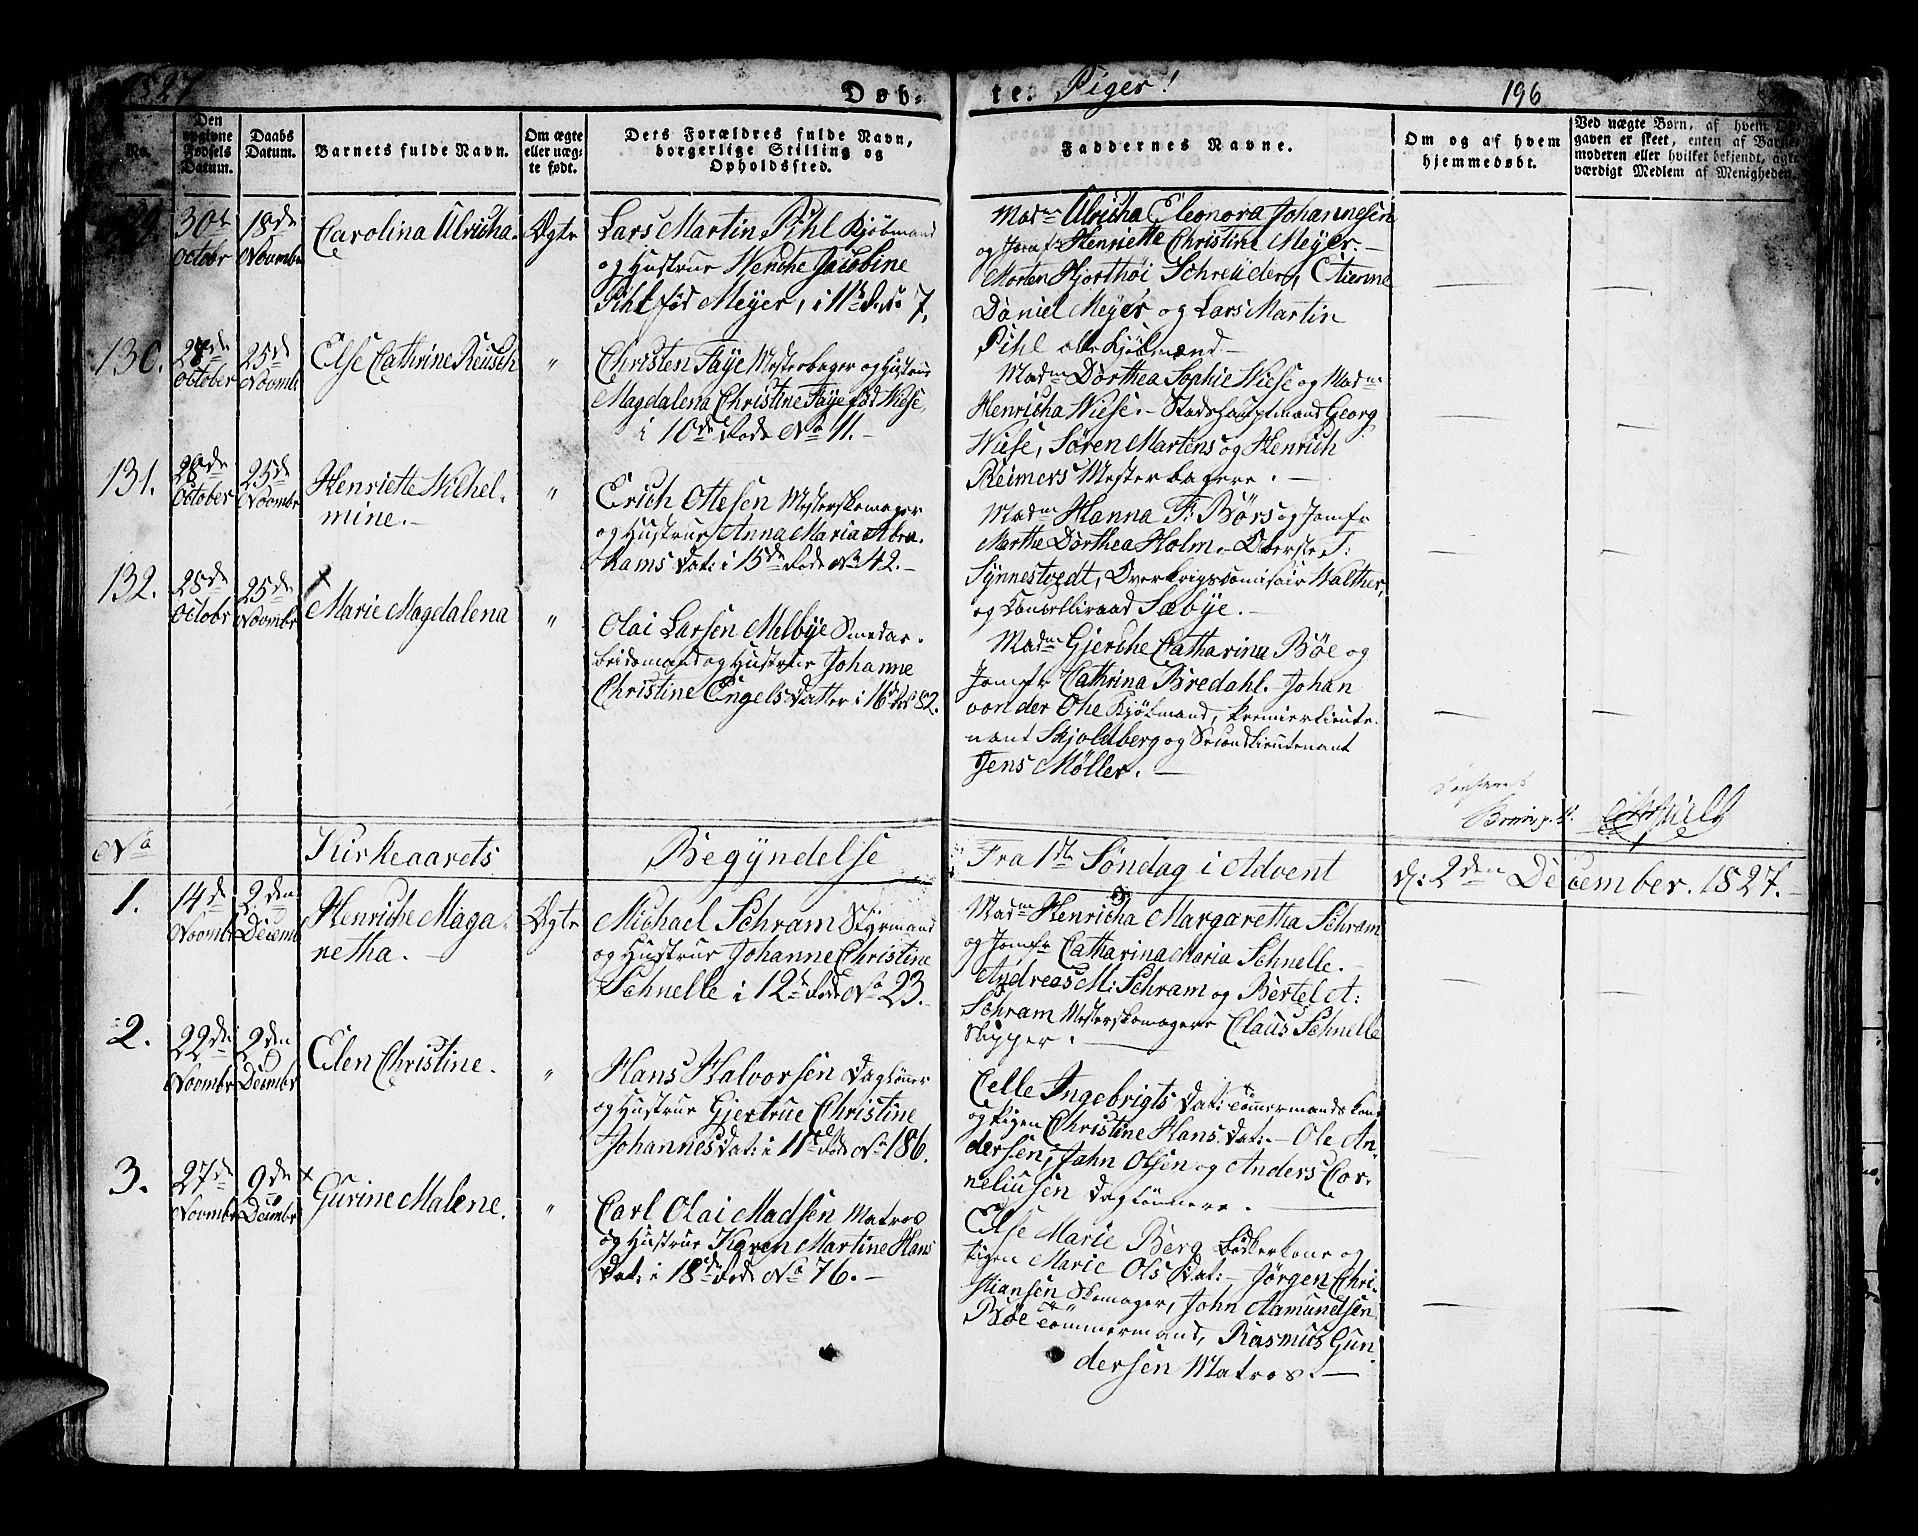 1827
Døb-
te. Piger!
196
No.
Den opgivne Fødsels Datum.
Daabs Datum.
Barnets fulde Navn.
Om ægte eller uægte født.
Dets Forældres fulde Navn, borgerlige Stilling og Opholdssted.
Faddernes Navne.
Om og af hvem hjemmedøbt.
Ved uægte Børn, af hvem Opgaven er skeet, enten af Barnemoderen eller hvilket bekjendt, agtværdigt Medlem af Menigheden.
129. 30te October 18de Novembr
Carolina Ulricha
Dgtr
Lars Martin Pihl Kjøbmand
og Hustrue Wenche Jacobine
Pihl fød Meyer, i 11te Rode 7.
Madme Ulricha Eleonora Johannesen
og Jomfr Henriette Christine Meyer.—
Morten Hjorthøi Schreuder, Etienne
Daniel Meyer og Lars Martin
Pihl alle Kjøbmænd—
130. 27de October 25de Novemb
Else Cathrine Reusch
"
Christen Faye Mesterbager og Hustrue
Magdalena Christine Faye fød Wiese,
i 10de Rode No 11.—
Madme Dorthea Sophie Wiese og Madme
Henricha Wiese.— Stadshauptmand Georg
Wiese, Søren Martens og Henrich
Reimers Mesterbagere.—
131. 28de October 25de Novembr
Henriette Wilhel-
mine.—
"
Erich Ottesen Mesterskomager
og Hustrue Anna Maria Abra-
hams Dat: i 15de Rode No 42.—
Madme Hanna F: Børs og Jomfr
Marthe Dorthea Holm.— Oberste T:
Synnestvedt, Overkrigscomisair Walther,
og Cancelliraad Sæbye.—
132. 28de Octobr 25de Novembr
Marie Magdalena
"
Olai Larsen Melbye Smedar-
beidsmand og Hustrue Johanne
Christine Engels Datter i 16de Rod 82.
Madme Gjerche Catharina Böe og
Jomfr Cathrina Bredahl. Johan
von der Ohe Kjøbmand, Premierlieute-
nant Skjoldberg og Secondlieutenant
Jens Møller.—
No
Kirkeaarets
Begyndelse
Fra 1ste Søndag i Advent
d: 2den December. 1827.—
1. 14de Novembr 2den Decemb
Henriche Maga-
retha.—
Dgtr
Michael Schram Styrmand
og Hustrue Johanne Christine
Schnelle i 12te Rode No 23.
Madme Henricha Margaretha Schram
og Jomfr Catharina Maria Schnelle.—
Andreas M: Schram og Bertel A:
Schram Mesterskomagere Claus Schnelle
Skipper.—
2. 22de Novembr 9den Decembr
Elen Christine.
"
Hans Halvorsen Daglønner
og Hustrue Gjertrue Christine
Johannes Dat: i 11te Rode No 186.
Celle Ingebrigts Dat: Tømmermands Kone
og Pigen Christine Hans Dat:— Ole An-
dersen, John Olsen og Anders Cor-
neliusen Daglønnere.—
3. 27de Novembr 9de Decembr
Gurine Malene.
"
Carl Olai Madsen Matros
og Hustrue Karen Martine Hans
Dat: i 18de Rode No 76.—
Else Marie Berg Bødkerkone og
Pigen Marie Ols Dat:— Jørgen Chri-
stiansen Skomager, John Aamundsen
Bøe Tømmermand, Rasmus Gun-
dersen Matros.—